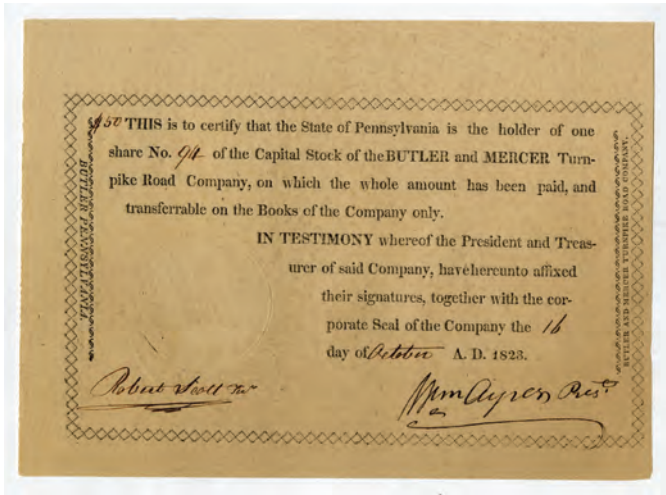 $50 THIS is to certify that the State of Pennsylvania is the holder of one
share No. 94 of the Capital Stock of the BUTLER and MERCER Turn-
pike Road Company, on which the whole amount has been paid, and
transferrable on the Books of the Company only.
IN TESTIMONY whereof the President and Treas-
urer of said Company, have hereunto affixed
their signatures, together with the cor-
porate Seal of the Company the 16
day of October A. D. 1823.
Robert Scott Tr
Wm Ayres Prest
BUTLER PENNSYLVANIA.
BUTLER AND MERCER TURNPIKE ROAD COMPANY.